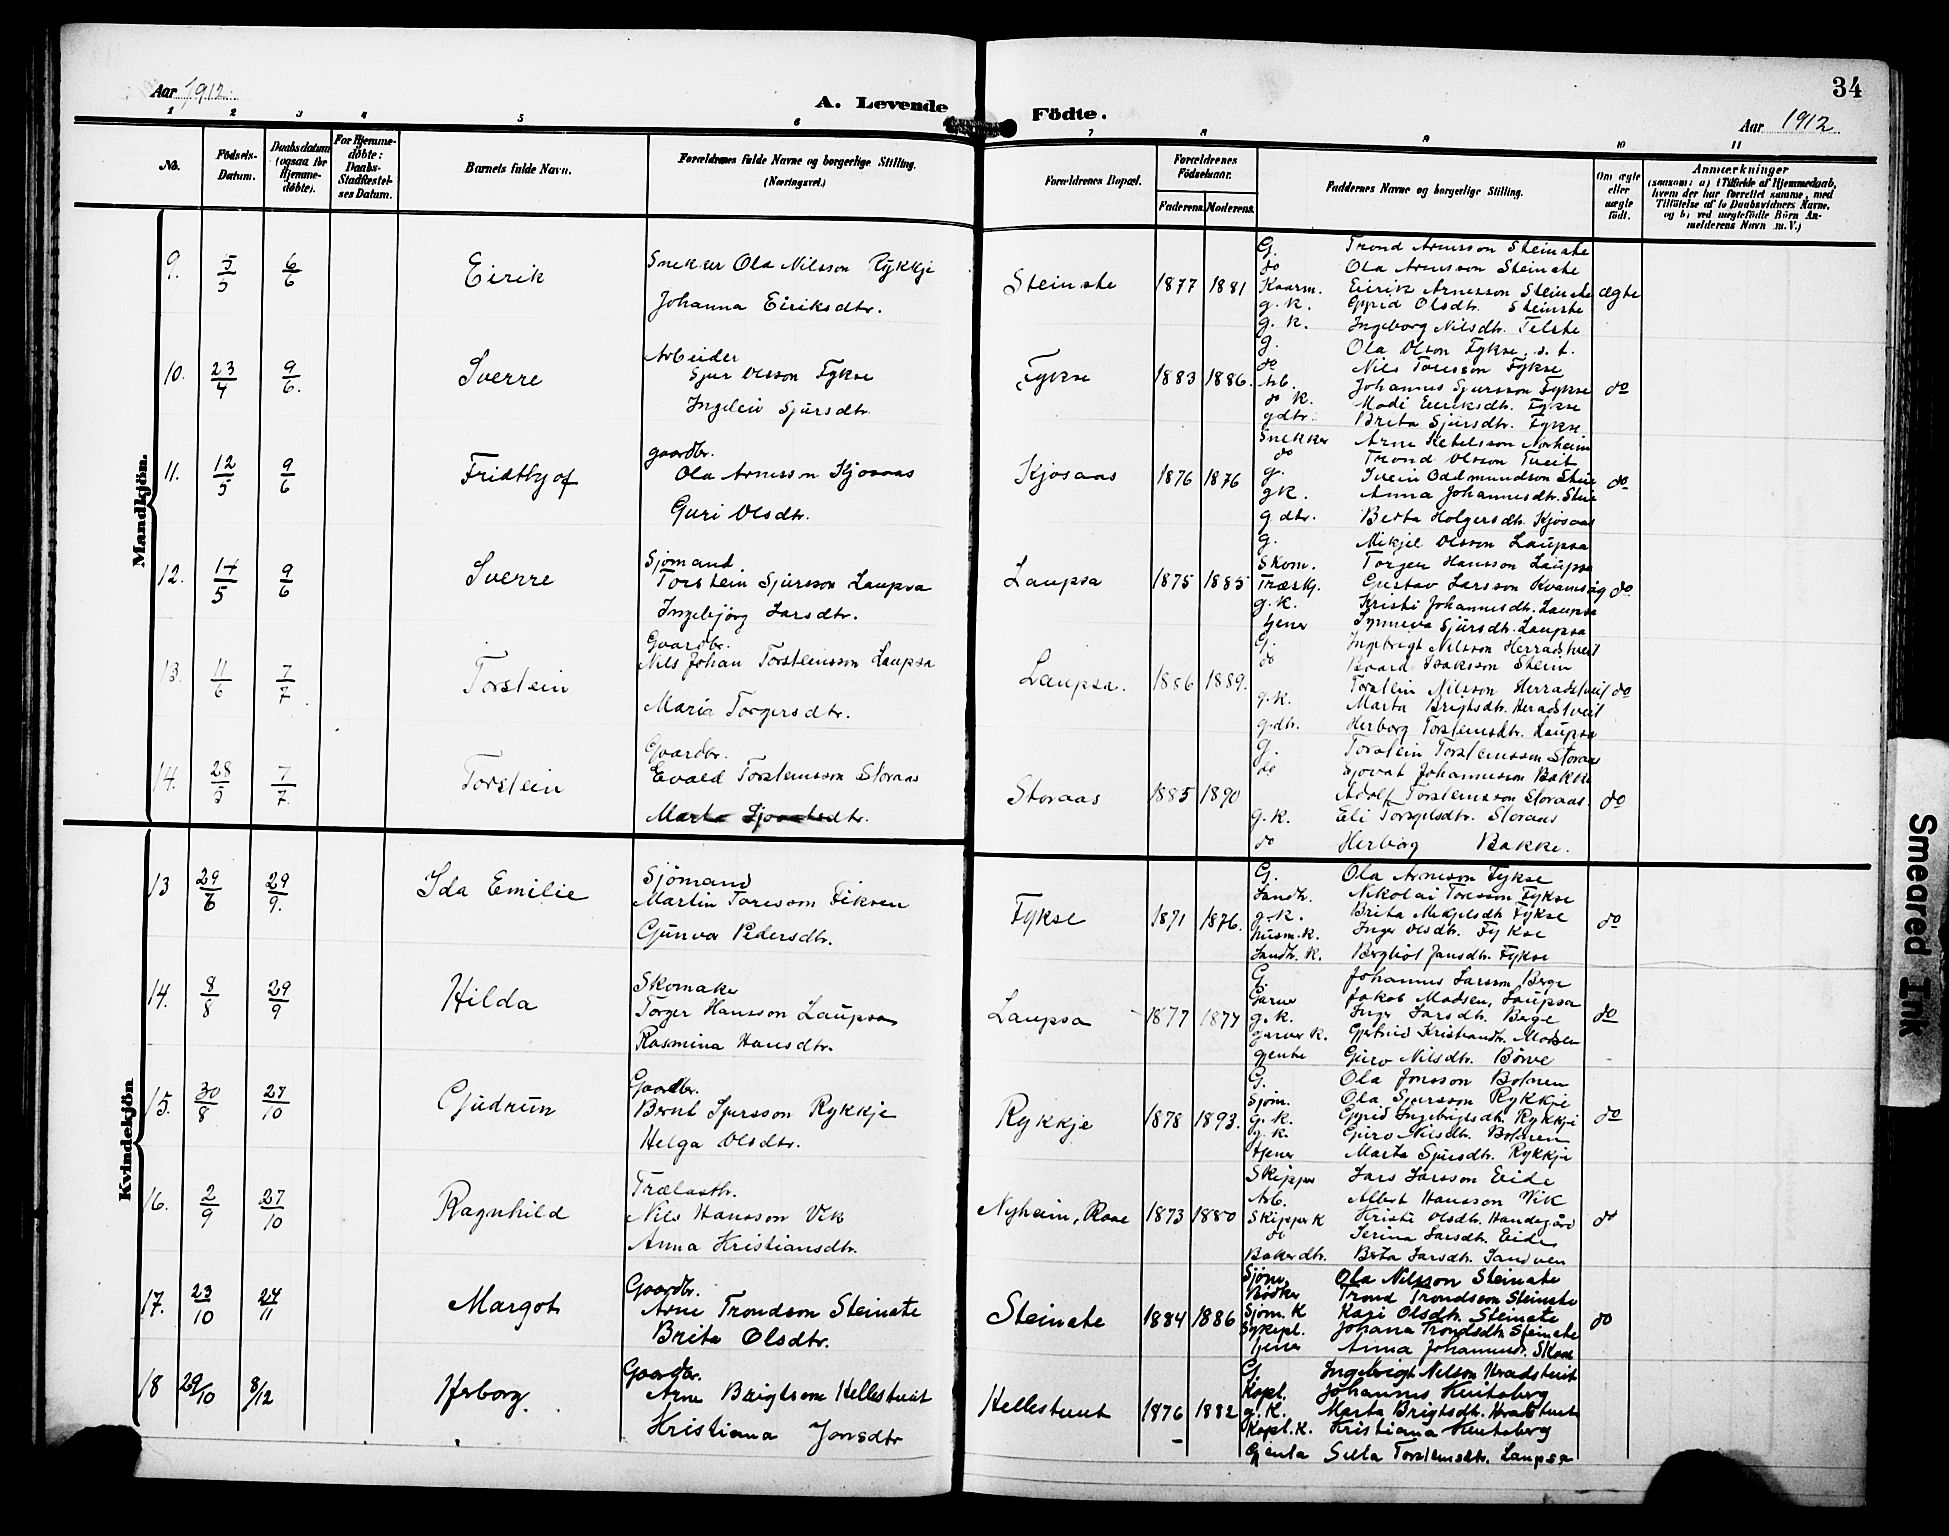 Aar 1912.
A. Levende
Födte.
34
Aar 1912
1 2 3 4 5 6 7 8 9 10 11
No.
Födsels-Datum.
Daabsdatum (ogsaa for Hjemme-döbte).
For Hjemme-döbte: Daabs-Stadfæstel-ses Datum.
Barnets fulde Navn.
Forældrenes fulde Navne og borgerlige Stilling. (Næringsvei.)
Forældrenes Bopæl.
Forældrenes Födselsaar.
Faderens. Moderens.
Faddernes Navne og borgerlige Stilling.
Om ægte eller uægte födt.
Anmærkninger
(saasom: a) i Tilfælde af Hjemmedaab,
hvem der har forrettet samme, med
Tilföielse af to Daabsvidners Navne,
og b) ved uægtefödte Börn An-
melderens Navn m. V.)
Mandkjön.
9. 5/5 6/6 Eirik
Snekker Ola Nilsson Rykkje
Johanna Eiriksdtr.
Steinste 1877 1881 ægte
G. Trond Arnesson Steinste
do Ola Arnesson Steinste
Kaarm. Eirik Arnesson Steinste
g. k. Olsdtr. Steinste
g. k. Ingeborg Nilsdtr. Telste
10. 23/4 9/6. Sverre
Arbeider
Sjur Olsson Fykse
Ingeleiv Sjursdtr.
Fykse 1883 1886. do
g. Ola Olson Fykse, s. t.
do Nils Toresson Fykse
Arb. Johannes Sjursson Fykse
do k. Madi Eiriksdtr. Fykse
gdtr. Brita Sjursdtr. Fykse
11. 12/5 9/6 Fridthjof
gaardbr.
Ola Arnesson Kjosaas
Guri Olsdtr.
Kjosaas 1876 1876 do
Snekker Arne Ketelsson Norheim
do Trond Olsson Tveit
g. Svein Odmundson Stene
gk. Anna Johannesdtr. Stene
g dtr. Berta Holgersdtr. Kjosaas
12. 14/5 9/6 Sverre
Sjömand
Torstein Sjursson Laupsa
Ingebjörg Larsdtr.
Laupsa 1875 1885 do
g. Mikjel Olsson Laupsa
Skom. Torger Hansson Laupsa
Træsk. Gustav Larsson Kvamsåg
g. k. Kristi Johannesdtr. Laupsa
tjener Synneva Sjursdtr. Laupsa
13. 11/6 7/7 Torstein
Gaardbr.
Nils Johan Torsteinsson Laupsa
Maria Torgersdtr.
Laupsa. 1886 1889. do
G. Ingebrigt Nilsson Herradstveit
do Baard Isaksson Stein
Torstein Nilsson Herradstveit
g.k. Marta Brigtsdtr. Heradstveit
g.dtr. Herborg Torsteinsdtr. Laupsa
14. 28/5 7/7. Torstein
Gaardbr.
Evald Torsteinsson Storaas
Marta Sjovatsdtr.
Storaas 1885 1890 do
g. Torstein Torsteinsson Storaas
do Sjovat Johannesson Bakke
Adolf Torsteinsson Storaas.
g. k. Eli Torgelsdtr. Storaas
do Herborg Bakke.
Kvindekjön
13 29/6 29/9. Ida Emilie
Sjömand
Martin Toresson Fiksen
Gunvor Pedersdtr.
Fykse 1871 1876. do
G. Ola Arneson Fykse
Landh. Nikolai Toresson Fykse
g. k. Brita Fykse
Husm. k. Inger Olsdtr. Fykse
Landh. k. Bergliot Jansdtr. Fykse
14. 8/8 29/9 Hilda
Skomaker
Torger Hansson Laupsa
Rasmina Hansdtr.
Laupsa 1877 1877 do
G. Johannes Larsson Berge
Garver Jakob Madsen, Laupsa
g. k. Inger Larsdtr. Berge
garver k. Gjertrud Kristiandtr. Madsen
gjente Guro Nilsdtr. Börve
15. 30/8 27/10 Gudrun
Gaardbr.
Bernt Sjursson Rykkje
Helga Olsdtr.
Rykkje 1878 1893. do
G. Ola Jonsson Botnen
Sjöm. Ola Sjursson Rykkje
g. k. Gyrid Ingebrigtsdtr. Rykkje
g. k. Guro Nilsdtr. Botnen
tjener Marta Sjursdtr. Rykkje
16. 2/9 27/10 Ragnhild
Trælasth.
Nils Hansson Vik
Anna Kristiansdtr.
Nyheim, 1873 1880 do
Skipper Lars Larsson Eide
Arb. Albert Hansson Vik
Skipper k Kristi Olsdtr. Handegård
do Serina Larsdtr. Eide
Baker dtr. Berta Larsdtr. Sandven
17. 23/10 24/11 Margot
Gaardbr.
Arne Trondson Steinste
Brita Olsdtr.
Steinste 1884 1886 do
Sjöm. Ola Nilsson Steinste
Bödker Trond Trondsson Steinste
Sjöm. k Kari Olsdtr. Steinste
Sykepl. Johana Trondsdtr. Steinste
tjener Anna Johannesdtr. Skaar
18 29/10 8/12 Herborg.
Gaardbr.
Arne Brigtson Hellestveit
Kristiana Jonsdtr
Hellestveit 1876 1882
G. Ingebrigt Nilson Heradstveit
Kapt. Johannes
g. K. Marta Brigtsdtr. Heradstveit
Kapt. K. Kristiana
Gjenta Torsteinsdtr. Laupsa
Smeared Ink